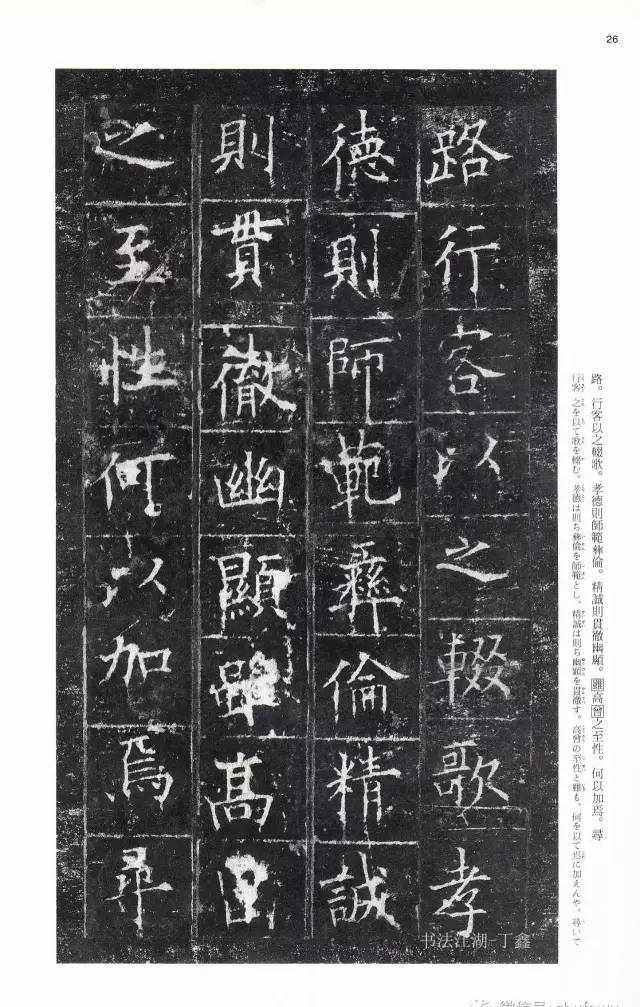 26
路行客以之輟歌孝
德則師範彝倫精誠
則貫徹幽顯雖高曾
之至性何以加焉尋
路。行客以之輟歌。孝德則師範彝倫。精誠則貫徹幽顯。雖高曾之至性。何以加焉。尋
行客 之を以て歌を輟む。孝德は則ち彝倫を師範とし。精誠は則ち幽顯を貫徹す。高曾の至性と雖も、何を以て焉に加えんや。尋いで
书法江湖-丁鑫